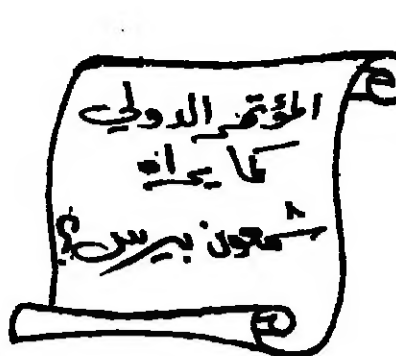 المؤتمر الدولي
كما يراه
شمعون بيرس؟